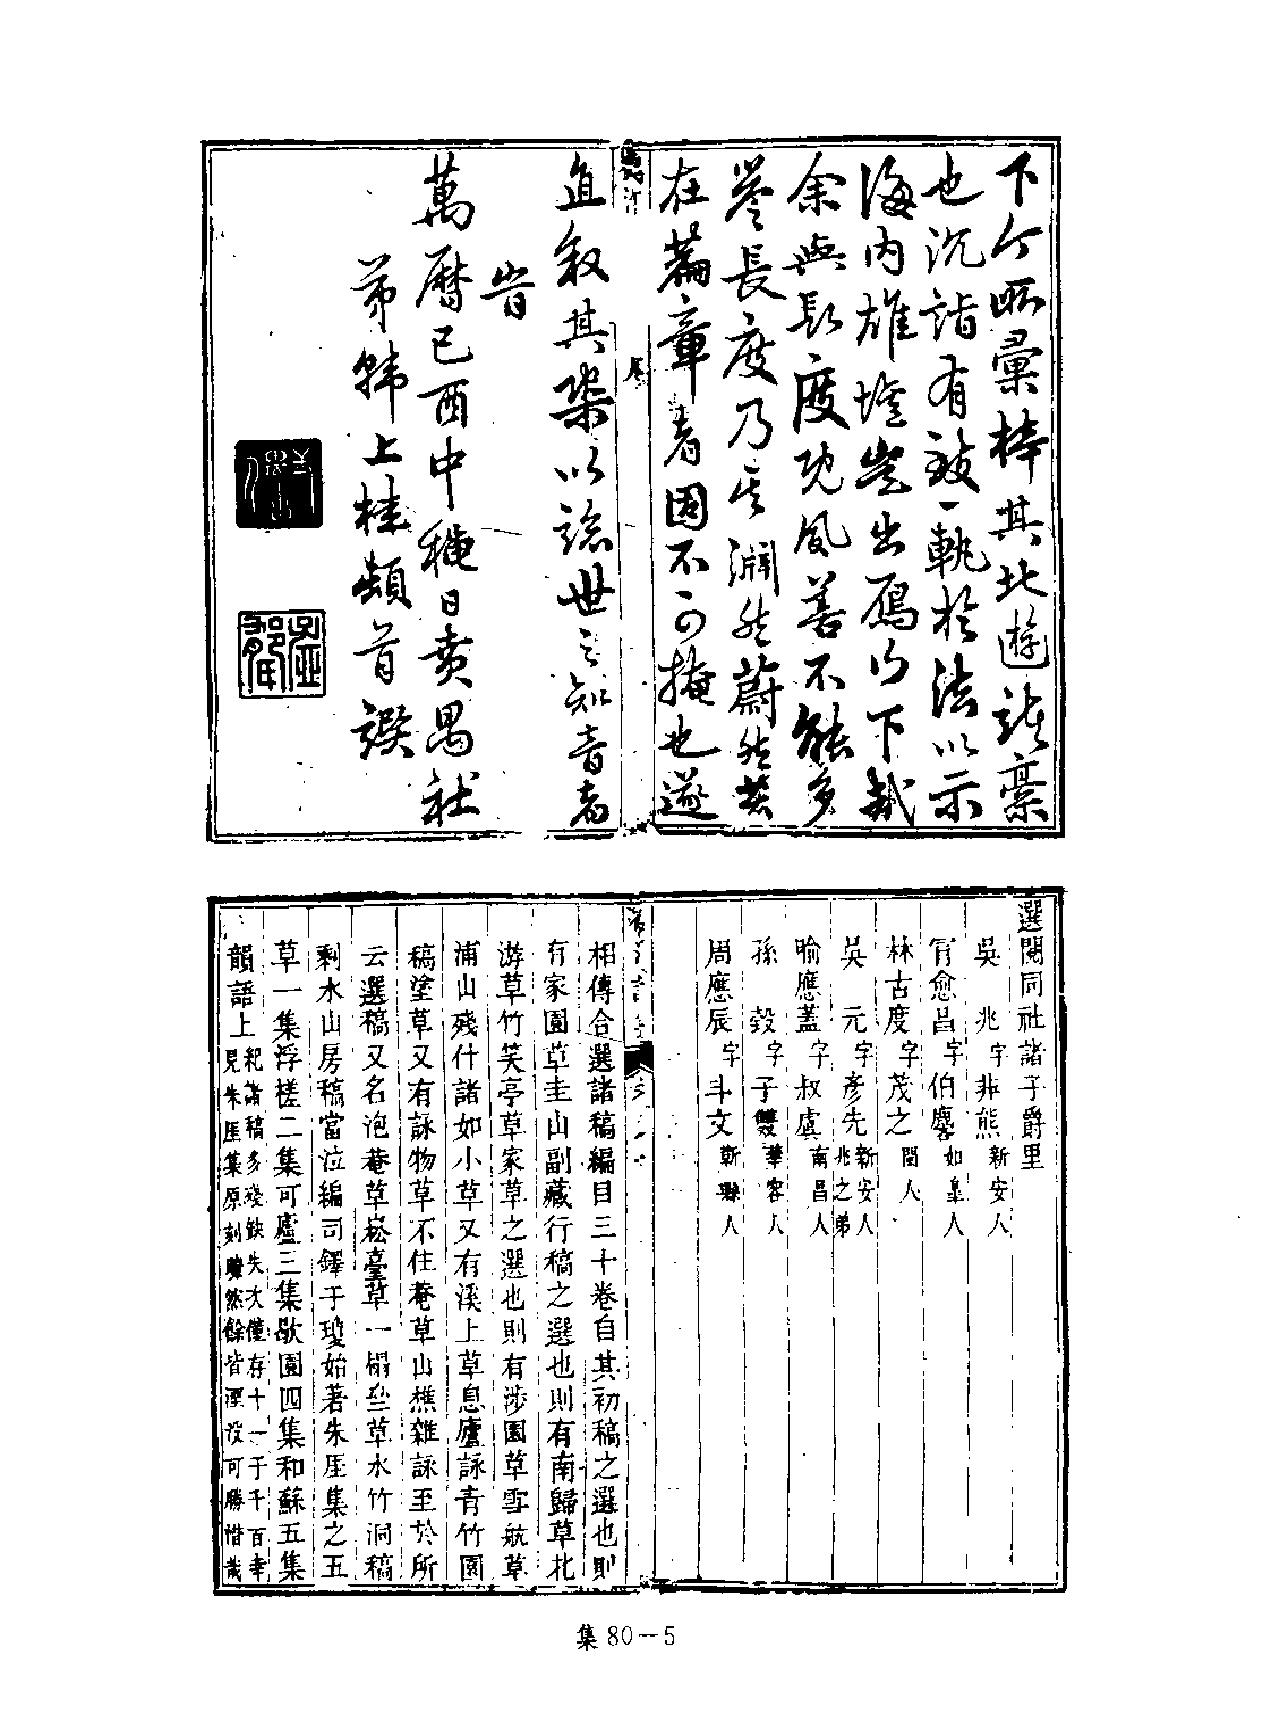 下今所彙梓其北遊諸稾
也沉詣有致一軌於法以示
海内雄壇豈出鴈行下哉
余與長度既風善不能多
譽長度乃其淵然蔚然者
在篇章者固不可掩也遂
直叙其槩以諗世之知音者
旹
萬曆己酉中穐日賁禺社
弟韓上桂頓首譔
選閱同社諸子爵里
吳兆字非熊新安人
冒愈昌字伯麐如皋人
林古度字茂之閩人
吳元字彥先新安人兆之弟
喻應蓋字叔虞南昌人
孫穀字子雙華容人
周應辰字斗文鄞縣人
相傳合選諸稿編目三十卷自其初稿之選也則
有家園草圭山副藏行稿之選也則有南歸草北
游草竹笑亭草家草之選也則有涉園草雪航草
浦山殘什諸如小草又有溪上草息廬詠青竹園
稿塗草又有詠物草不住菴草山樵雜詠至於所
云選稿又名泡菴草崧臺草一榻草水竹洞稿
剩水山房稿當泣編司鐸于瓊始著朱厓集之五
草一集浮槎二集可廬三集歇園四集和蘇五集
韻語上見朱厓集原刻賸然餘皆湮没可勝惜哉
集 80－5